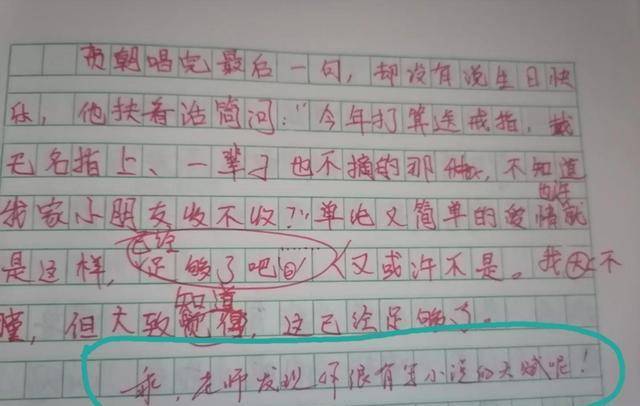 贡朝唱完最后一句，却没有说生日快
乐，他扶着话筒问："今年打算送戒指，戴
无名指上、一辈子也不摘的那种，不知道
我家小朋友收不收？"单论又简单的爱情就
也许
是这样，足够了吧
已经
又或许不是。我不
懂，但大致觉得，这已经足够了。
知道
乖，老师发现你很有写小说的天赋呢！